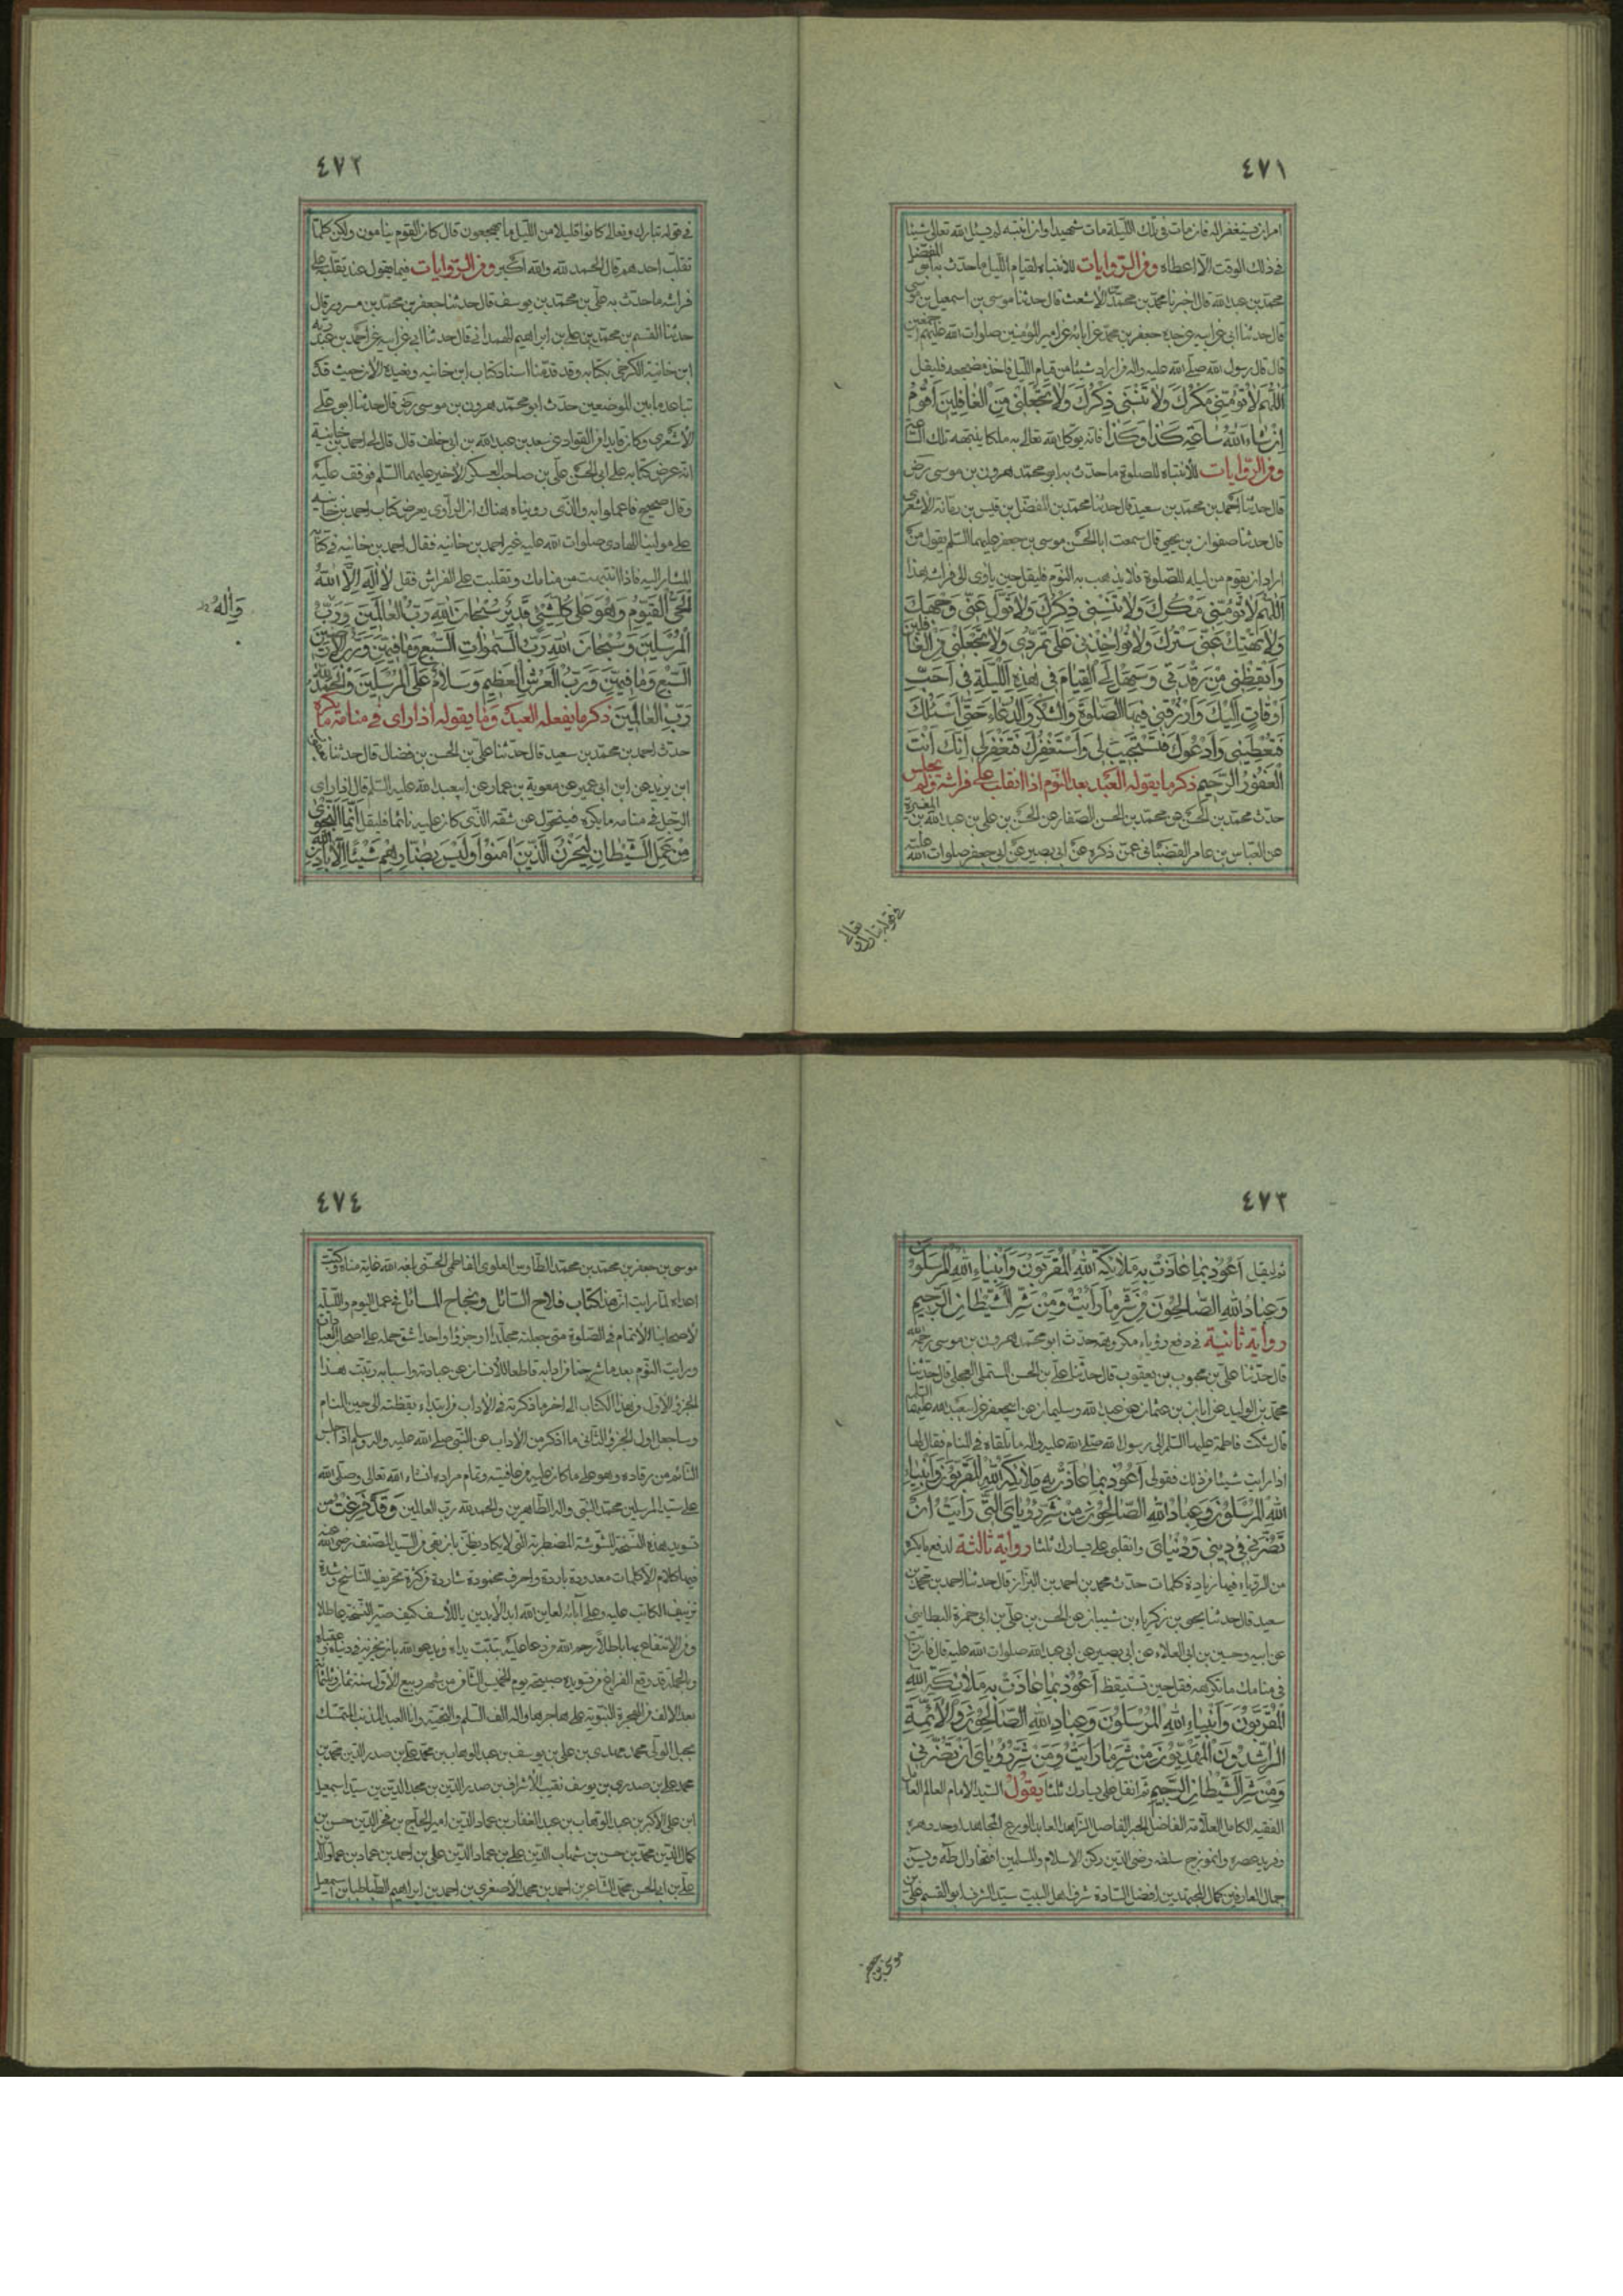 ٤٧١
امر ان يستغفر له فان مات في تلك الليلة مات شهيدا وان انتبه لم يسئل الله تعالى شيئا
في ذلك الوقت الا اعطاه ومن الروايات للانتباه لقيام الليل ما حدث به ابو المفضل
محمد بن عبد الله قال اخبرنا محمد بن محمد بن الاشعث قال حدثنا موسى بن اسمعيل بن موسى
قال حدثنا ابي عن ابيه عن جده جعفر بن محمد عن ابائه عن امير المؤمنين صلوات الله عليهم اجمعين
قال قال رسول الله صلى الله عليه واله من اراد شيئا من قيام الليل فاخذ مضجعه فليقل
اَللّهُمَّ لا تُؤْمِنّي مَكْرَكَ وَلا تُنْسِني ذِكْرَكَ وَلا تَجْعَلْني مِنَ الْغافِلينَ اَقُومُ
اِنْ شاءَ اللهُ ساعَةَ كَذا وَكَذا فانه يوكل الله تعالى به ملكا ينبهه تلك الساعة
ومن الروايات للانتباه للصلوة ما حدث به ابو محمد هرون بن موسى رض
قال حدثنا احمد بن محمد بن سعيد قال حدثنا محمد بن المفضل بن قيس بن رمانة الاشعري
قال حدثنا صفوان بن يحيى قال سمعت ابا الحسن موسى بن جعفر عليهما السلم يقول من
اراد ان يقوم من ليله للصلوة فلا يذهب به النوم فليقل حين ياوى الى فراشه هذا
اَللّهُمَّ لا تُؤْمِنّي مَكْرَكَ وَلا تُنْسِني ذِكْرَكَ وَلا تُوَلِّ عَنّي وَجْهَكَ
وَلا تَهْتِكْ عَنّي سِتْرَكَ وَلا تُؤاخِذْني عَلى تَمَرُّدي وَلا تَجْعَلْني مِنَ الْغافِلينَ
وَاَيْقِظْني مِنْ رَقْدَتي وَسَهِّلْ لِيَ الْقِيامَ في هذِهِ اللَّيْلَةِ في اَحَبِّ
اَوْقاتٍ اِلَيْكَ وَارْزُقْني فيهَا الصَّلوةَ وَالشُّكْرَ وَالدُّعاءَ حَتّى اَسْئَلُكَ
فَتُعْطِيَني وَاَدْعُوَكَ فَتَسْتَجيبَ لي وَاَسْتَغْفِرُكَ فَتَغْفِرَ لي اِنَّكَ اَنْتَ
الْغَفُورُ الرَّحيمُ ذكر ما يقوله العبد بعد النوم اذا انقلب على فراشه ولم يجلس
حدث محمد بن الحسن عن محمد بن الحسن الصفار عن الحسن بن علي بن عبد الله بن المغيرة
عن العباس بن عامر القصباني عمن ذكره عن ابي بصير عن ابي جعفر صلوات الله عليه
في قوله تبارك وتعالى
٤٧٢
في قوله تبارك وتعالى كانوا قليلا من الليل ما يهجعون قال كان القوم ينامون ولكن كلما
تقلب احدهم قال الحمد لله والله اكبر ومن الروايات فيما يقول عند تقلبه على
فراشه ما حدث به علي بن محمد بن يوسف قال حدثنا جعفر بن محمد بن مسرور قال
حدثنا القسم بن محمد بن علي بن ابراهيم الهمداني قال حدثنا ابي عن ابيه عن احمد بن عبد ربه
ابن خانبه الكرخي بكتابه وقد قدمنا اسناد كتاب ابن خانبه ونعيده الان حيث قد
تباعد ما بين الموضعين حدث ابو محمد هرون بن موسى رض قال حدثنا ابو علي
الاشعري وكان قايدا من القواد عن سعد بن عبد الله بن ابي خلف قال قال لي احمد بن خانبه
انه عرض كتابه على ابي الحسن علي بن صاحب العسكر الاخير عليهما السلم فوقف عليه
وقال صحيح فاعملوا به والذي رويناه هناك ان الراوي يعرض كتاب احمد بن خانبه
على مولينا الهادي صلوات الله عليه غير احمد بن خانبه فقال احمد بن خانبه في كتابه
المشار اليه فاذا انتبهت من منامك وتقلبت على الفراش فقل لا اِلهَ اِلاَّ اللهُ
الْحَيُّ الْقَيُّومُ وَهُوَ عَلى كُلِّ شَيْئٍ قَديرٌ سُبْحانَ اللهِ رَبِّ الْعالَمينَ وَرَبِّ
الْمُرْسَلينَ وَسُبْحانَ اللهِ رَبِّ السَّمواتِ السَّبْعِ وَما فيهِنَّ وَرَبِّ الاَرَضينَ
السَّبْعِ وَما فيهِنَّ وَرَبِّ الْعَرْشِ الْعَظيمِ وَسَلامٌ عَلَى الْمُرْسَلينَ وَالْحَمْدُ للهِ
رَبِّ الْعالَمينَ ذكر ما يفعله العبد وما يقوله اذا راى في منامه ما يكره
حدث احمد بن محمد بن سعيد قال حدثنا علي بن الحسن بن فضال قال حدثنا
ابن يزيد عن ابن ابي عمير عن معوية بن عمار عن ابي عبد الله عليه السلم قال اذا راى
الرجل في منامه ما يكره فيتحول عن شقه الذي كان عليه نائما فليقل اِنَّمَا النَّجْوى
مِنْ عَمَلِ الشَّيْطانِ لِيَحْزُنَ الَّذينَ امَنُوا وَلَيْسَ بِضارِّهِمْ شَيْئًا اِلاّ بِاِذْنِ اللهِ
وَالِهِ
٤٧٣
ثم ليقل اَعُوذُ بِما عاذَتْ بِهِ مَلائِكَةُ اللهِ الْمُقَرَّبُونَ وَاَنْبِياءُ اللهِ الْمُرْسَلُونَ
وَعِبادُ اللهِ الصّالِحُونَ مِنْ شَرِّ ما رَاَيْتُ وَمِنْ شَرِّ الشَّيْطانِ الرَّجيمِ
رواية ثانية في دفع رؤياء مكروهة حدث ابو محمد هرون بن موسى رحمه الله
قال حدثنا علي بن محبوب بن يعقوب قال حدثنا علي بن الحسن المستملي العجلي قال حدثنا
محمد بن الوليد عن ابان بن عثمان عن عبد الله وسليمان عن ابي جعفر عن ابي عبد الله عليهما السلم
قال شكت فاطمة عليها السلم الى رسول الله صلى الله عليه واله ما تلقاه في المنام فقال لها
اذا رايت شيئا من ذلك فقولي اَعُوذُ بِما عاذَتْ بِهِ مَلائِكَةُ اللهِ الْمُقَرَّبُونَ وَاَنْبِياءُ
اللهِ الْمُرْسَلُونَ وَعِبادُ اللهِ الصّالِحُونَ مِنْ شَرِّ رُؤْيايَ الَّتي رَاَيْتُ اَنْ
تَضُرَّني في ديني وَدُنْيايَ وانقلبي على يسارك ثلثا رواية ثالثة لدفع ما يكره
من الرؤياء فيها زيادة كلمات حدث محمد بن احمد بن البزاز قال حدثنا احمد بن محمد بن
سعيد قال حدثنا يحيى بن زكرياء بن شيبان عن الحسن بن علي بن ابي حمزة البطايني
عن ابيه وحسين بن ابي العلاء عن ابي بصير عن ابي عبد الله صلوات الله عليه قال فان رايت
في منامك ما تكرهه فقل حين تستيقظ اَعُوذُ بِما عاذَتْ بِهِ مَلائِكَةُ اللهِ
الْمُقَرَّبُونَ وَاَنْبِياءُ اللهِ الْمُرْسَلُونَ وَعِبادُ اللهِ الصّالِحُونَ وَالاَئِمَّةُ
الرّاشِدُونَ الْمَهْدِيُّونَ مِنْ شَرِّ ما رَاَيْتُ وَمِنْ شَرِّ رُؤْيايَ اَنْ تَضُرَّني
وَمِنْ شَرِّ الشَّيْطانِ الرَّجيمِ ثم انفل على يسارك ثلثا يقول السيد الامام العالم العامل
الفقيه الكامل العلامة الفاضل الحبر الفاصل الزاهد العابد الورع المجاهد اوحد دهره
وفريد عصره وانموزج سلفه رضي الدين ركن الاسلام والمسلمين افتخار ال طه ويس
جمال العارفين كمال المجتهدين افضل السادة شرف اهل البيت سيد الشرف ابو القسم علي بن
موسى بن جعفر
٤٧٤
موسى بن جعفر بن محمد بن محمد الطاوس العلوي الفاطمي الحسني بلغه الله غاية مناه وكبت
اعداه لما رايت ان هذا كتاب فلاح السائل ونجاح المسائل في عمل اليوم والليلة
لاصحابنا الاتمام في الصلوة متى جعلته مجلدا او جزؤا واحدا شق حمله على اصحاب العبادات
ورايت النوم بعد ما شرحنا من ادابه قاطعا للانسان عن عبادته واسبابه رتبت هذا
الجزؤ الاول من هذا الكتاب الى اخر ما ذكرته في الاداب من ابتداء يقظته الى حين المنام
وساجعل اول الجزؤ الثاني ما اذكر من الاداب عن النبي صلى الله عليه واله وسلم اذا جلس
النائم من رقاده وهو على ما كان عليه من عافيته وتمام مراده انشاء الله تعالى وصلى الله
على سيد المرسلين محمد النبي واله الطاهرين والحمد لله رب العالمين وَقَدْ فَرِغْتُ من
تسويد هذه النسخة المشوشة المضطربة التي لا يكاد يظن بان بقي من السيد المصنف رضي الله عنه
فيها كلام الا كلمات معدودة باردة واحرف محدودة شاردة من كثرة تحريف الناسخ وشدة
تزييف الكاتب عليه وعلى ابائه لعاين الله ابد الابدين يا للاسف كيف صير النسخة عاطلا
ومن الانتفاع بها باطلا رحم الله من دعا عليه بتبت يداه ويدعو الله بان يخزيه في دنياه وعقباه
وبالجملة قد وقع الفراغ من تسويده صبيحة يوم الخميس الثامن من شهر ربيع الاول سنة ثمان وثلثمائة
بعد الالف من الهجرة النبوية على مهاجرها واله الف السلم والتحية وانا العبد المذنب المتمسك
بحبل الولى محمد مهدي بن علي بن يوسف بن عبد الوهاب بن محمد علي بن صدر الدين محمد بن
محمد علي بن صدري بن يوسف نقيب الاشراف بن صدر الدين بن مجد الدين بن سيد اسمعيل
ابن علي الاكبر بن عبد الوهاب بن عبد الغفار بن عماد الدين امير الحاج بن فخر الدين حسن بن
كمال الدين محمد بن حسن بن شهاب الدين علي بن عماد الدين علي بن احمد بن عماد بن
علي بن ابي الحسن محمد الشاعر بن احمد بن محمد الاصغر بن احمد بن ابراهيم الطباطبا بن اسمعيل